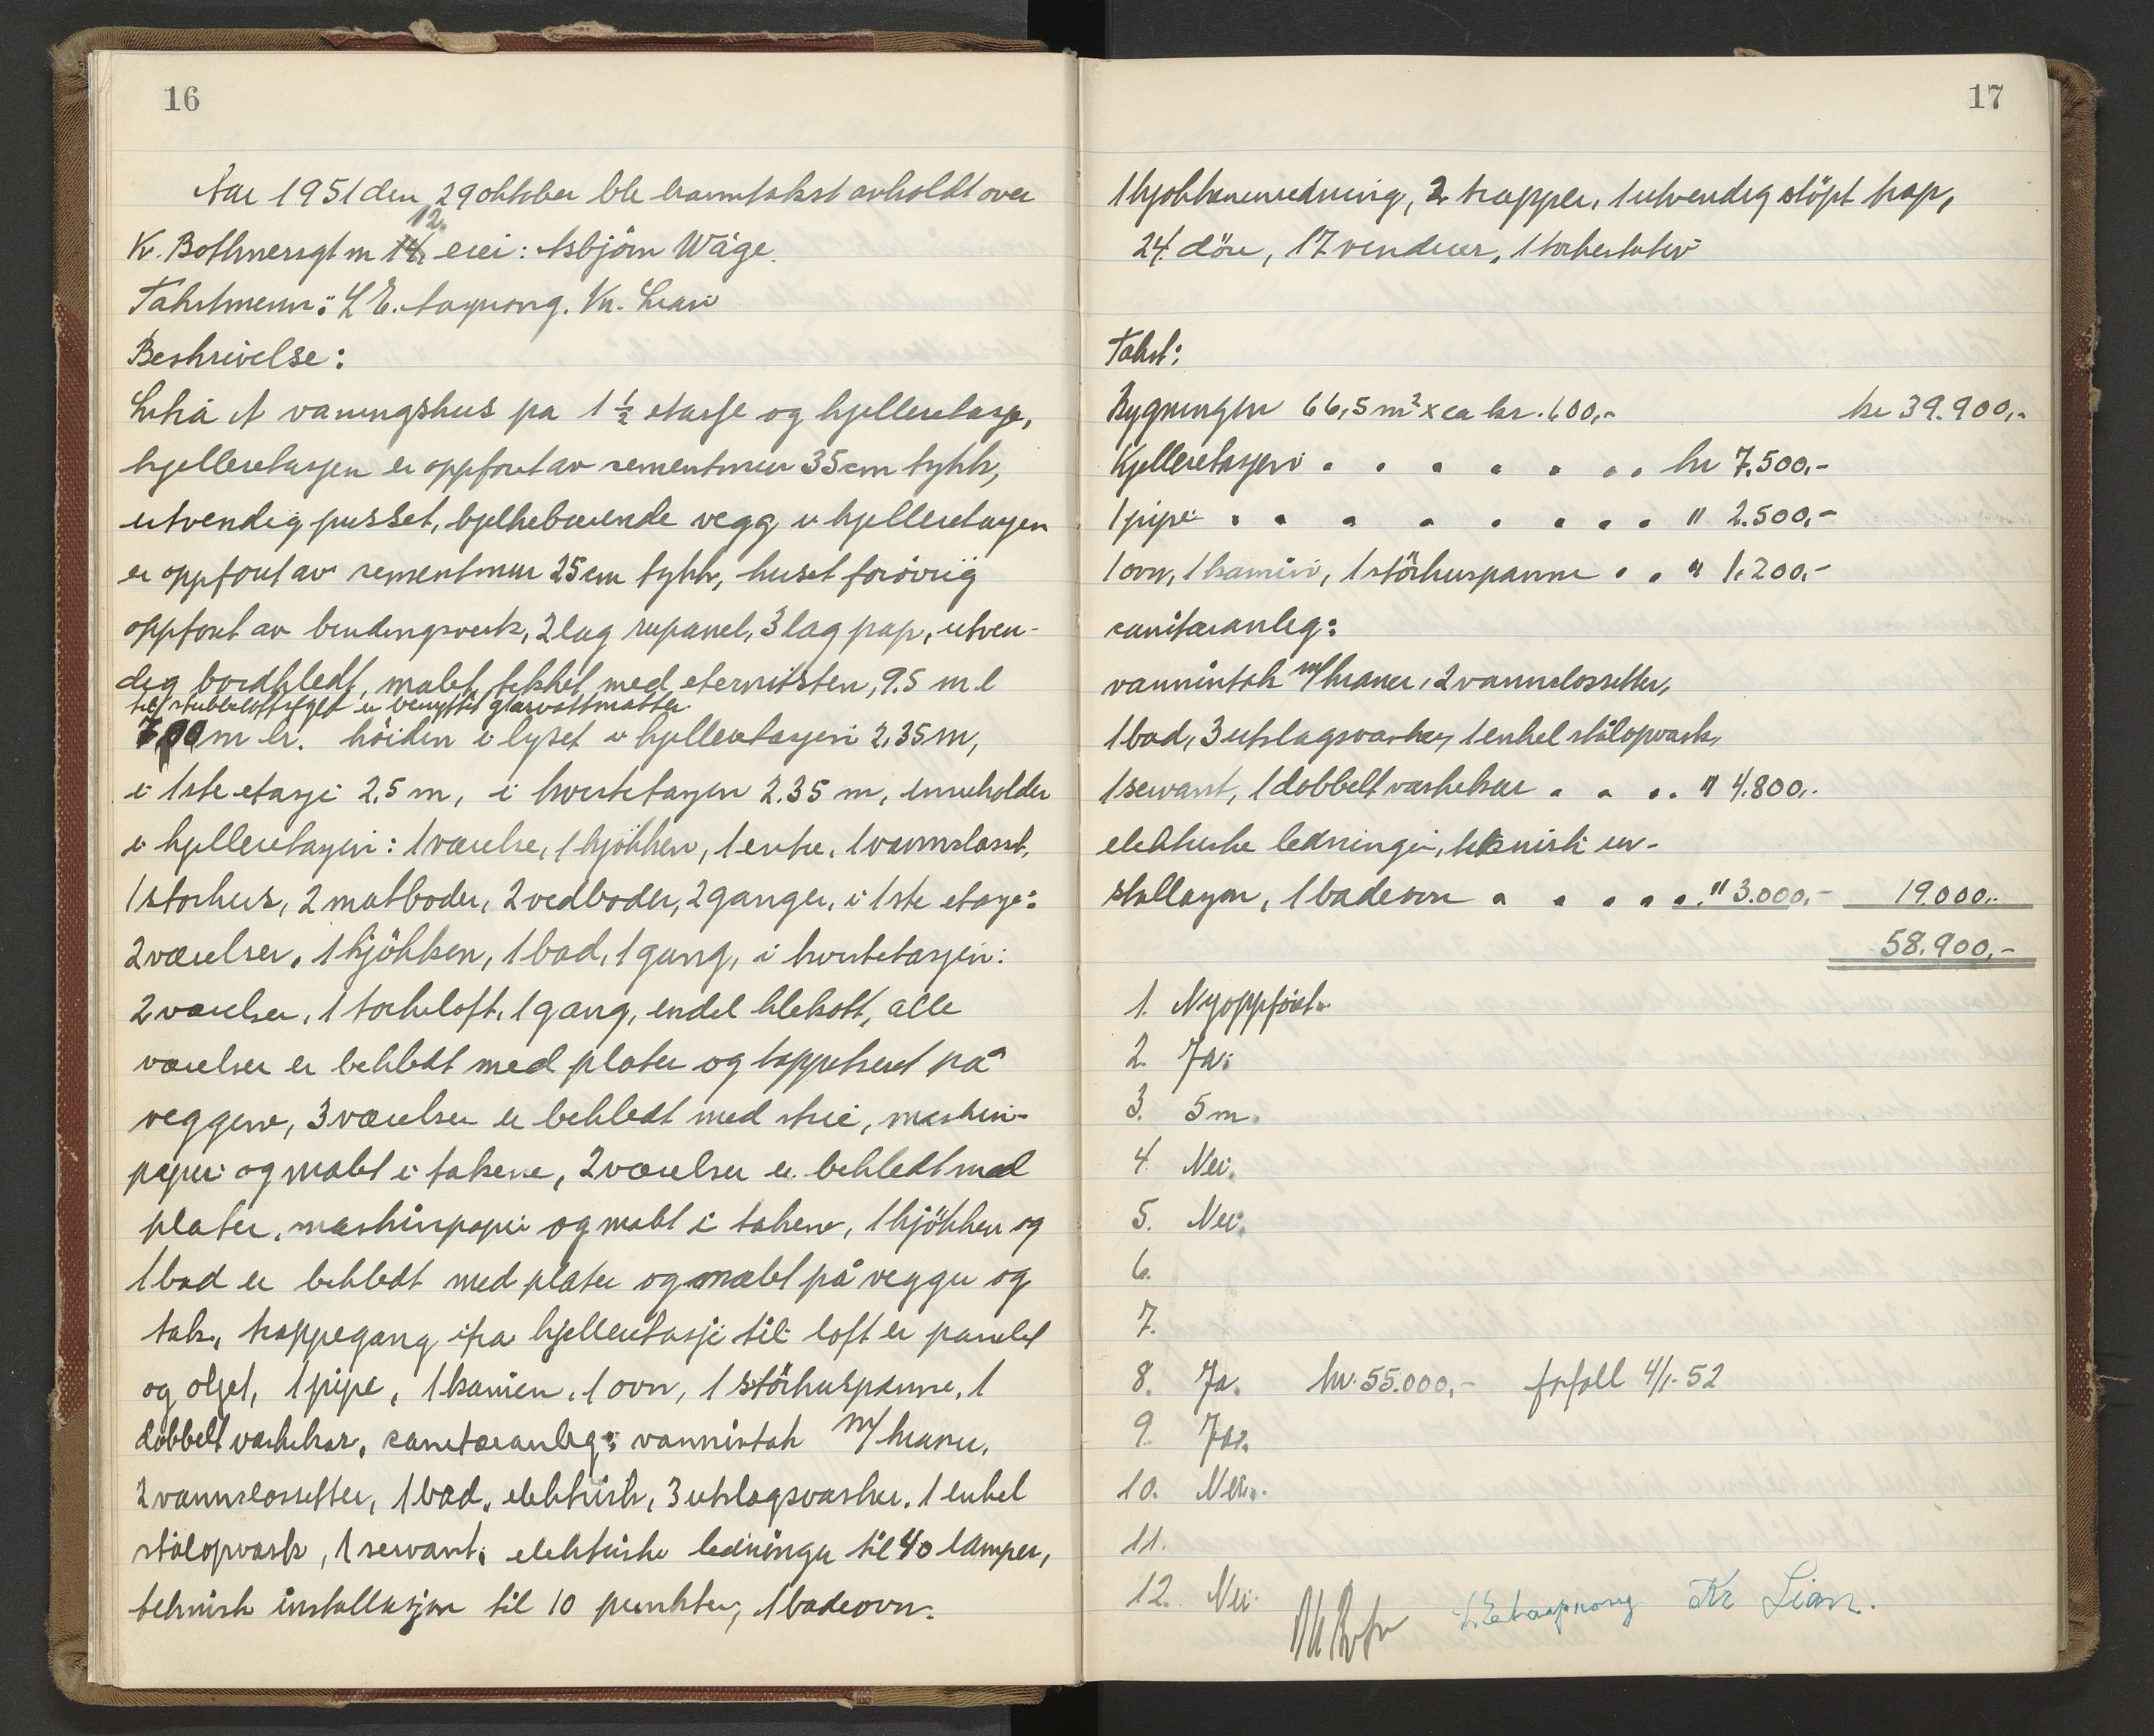 16
Aar 1951 den 29 oktober ble branntakst avholdt over
12.
K. Bothnersgt nr 14 eier: Asbjörn Wåge.
Takstmenn: L E. Kr. Lian
Beskrivelse:
et vaningshus pa 1 ½ etasje og kjelleretasje,
kjelleretasjen er oppfort av sementmur 35 cm tykk,
utvendig pusset, bjelkebærende vegg i kjelleretasjen
er oppfort av sementmur 25 cm tykk, huset forövrig
oppfort av bindingsverk, 2 lag rupanel, 3 lag pap, utven-
dig bordkledt, malet, tekket med eternitsten, 9.5 m l
til stubeloftsfyld er benyttet glasvattmatter
7,00 m br. höiden i lyset i kjelleretasjen 2,35 m,
i 1ste etasje 2,5 m, i kvistetasjen 2.35 m, inneholder
i kjelleretasjen: 1 værelse, 1 kjökken, 1 entre, 1 vannclosset,
1 storhus, 2 matboder, 2 vedboder, 2 ganger, i 1ste etasje:
2 værelser, 1 kjökken, 1 bad, 1 gang, i kvistetasjen:
2 værelser, 1 torkeloft, 1 gang, endel klekott, alle
værelser er bekledt med plater og tappetsert på
veggene, 3 værelser er bekledt med strie, maskin-
papir og malet i takene, 2 værelser er bekledt med
plater, maskinpapir og malt i takene, 1 kjökken og
1 bad er bekledt med plater og malet på vegger og
tak, trappegang ifra kjelleretasje til loft er panelt
og oljet, 1 pipe, 1 kamin, 1 ovn, 1 störhuspanne, 1
dobbelt vaskekar, sanitæranleg: vannintak m/kraner,
2 vannclossetter, 1 bad, elektrisk, 3 utslagsvasker, 1 enkel
stålopvask, 1 servant, elektriske ledninger til 40 lamper,
teknisk installasjon til 10 punkter, 1 badeovn.
17
1 kjokkeninnredning, 2 trapper, 1 utvendig stöpt trap,
24 döre, 17 vinduer, 1 torkestativ
Takst:
Bygningen 66,5 m² x ca kr. 600,- kr 39.900,-
Kjelleretasjen . . . . . . . kr 7.500,-
1 pipe . . . . . . . . " 2.500,-
1 ovn, 1 kamin, 1 störhuspanne . . " 1.200,-
sanitæranleg:
vanninntak m/kraner, 2 vannclossetter,
1 bad, 3 utslagsvasker, 1 enkel stålopvask,
1 servant, 1 dobbelt vaskekar . . . . " 4.800,-
elektriske ledninger, teknisk in-
stallasjon, 1 badeovn . . . . . " 3.000,- 19.000,-
58.900,-
1. Nyoppfört.
2. Ja.
3. 5 m.
4. Nei.
5. Nei.
6.
7.
8. Ja. kr. 55.000,- forfall 4/1-52
9. Ja.
10. Nei.
11.
12. Nei.
Kr Lian.